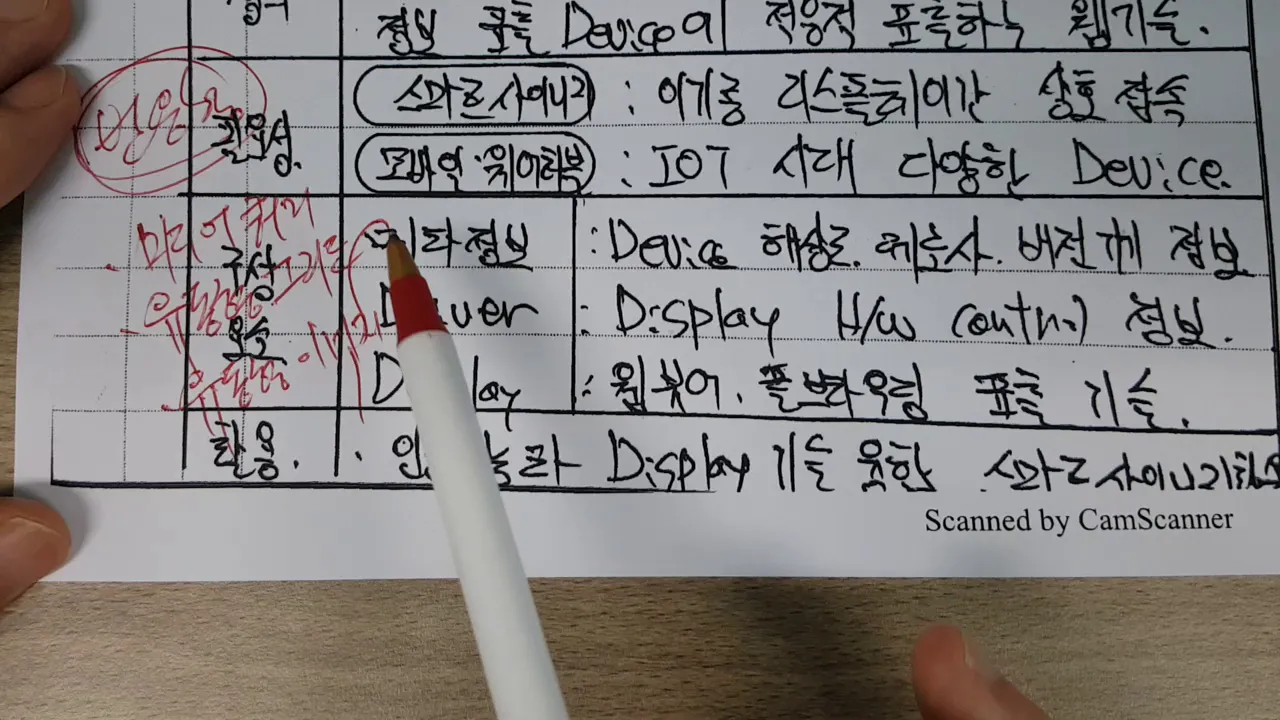 정보 표출 Device에 적응적 표출하는 웹기술.
스마트 사이니지 : 이기종 디스플레이간 상호 접속
필요성.
모바일·웨어러블 : IOT 시대 다양한 Device.
미디어쿼리
메타정보 : Device 해상도. 제조사. 버전 등 정보
구성
유동형 그리드
Driver : Display H/W Control 정보.
요소
유동형 이미지
Display : 웹뷰어. 풀브라우징 표출 기술.
활용. · Display 기술 유한 스마트 사이니지
Scanned by CamScanner